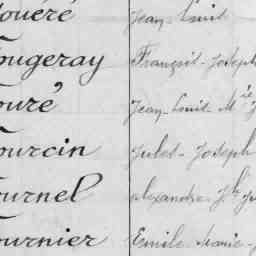 ouéré Jean-Louis
ougeray François-Joseph
ouré Jean-Louis Mie J
ourcin Jules-Joseph
ournel Alexandre-Jh
ournier Emile-Marie-